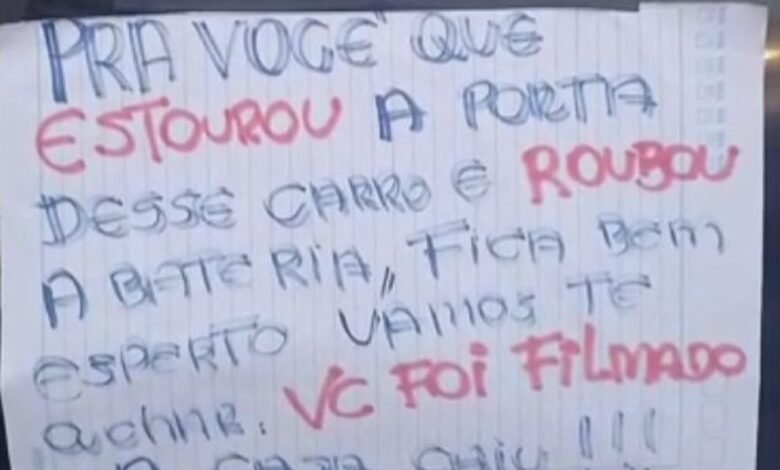 PRA VOCÊ QUE
ESTOUROU A PORTA
DESSE CARRO E ROUBOU
A BATERIA, FICA BEM
ESPERTO VAMOS TE
achar. VC FOI FILMADO
A CASA CAIU !!!